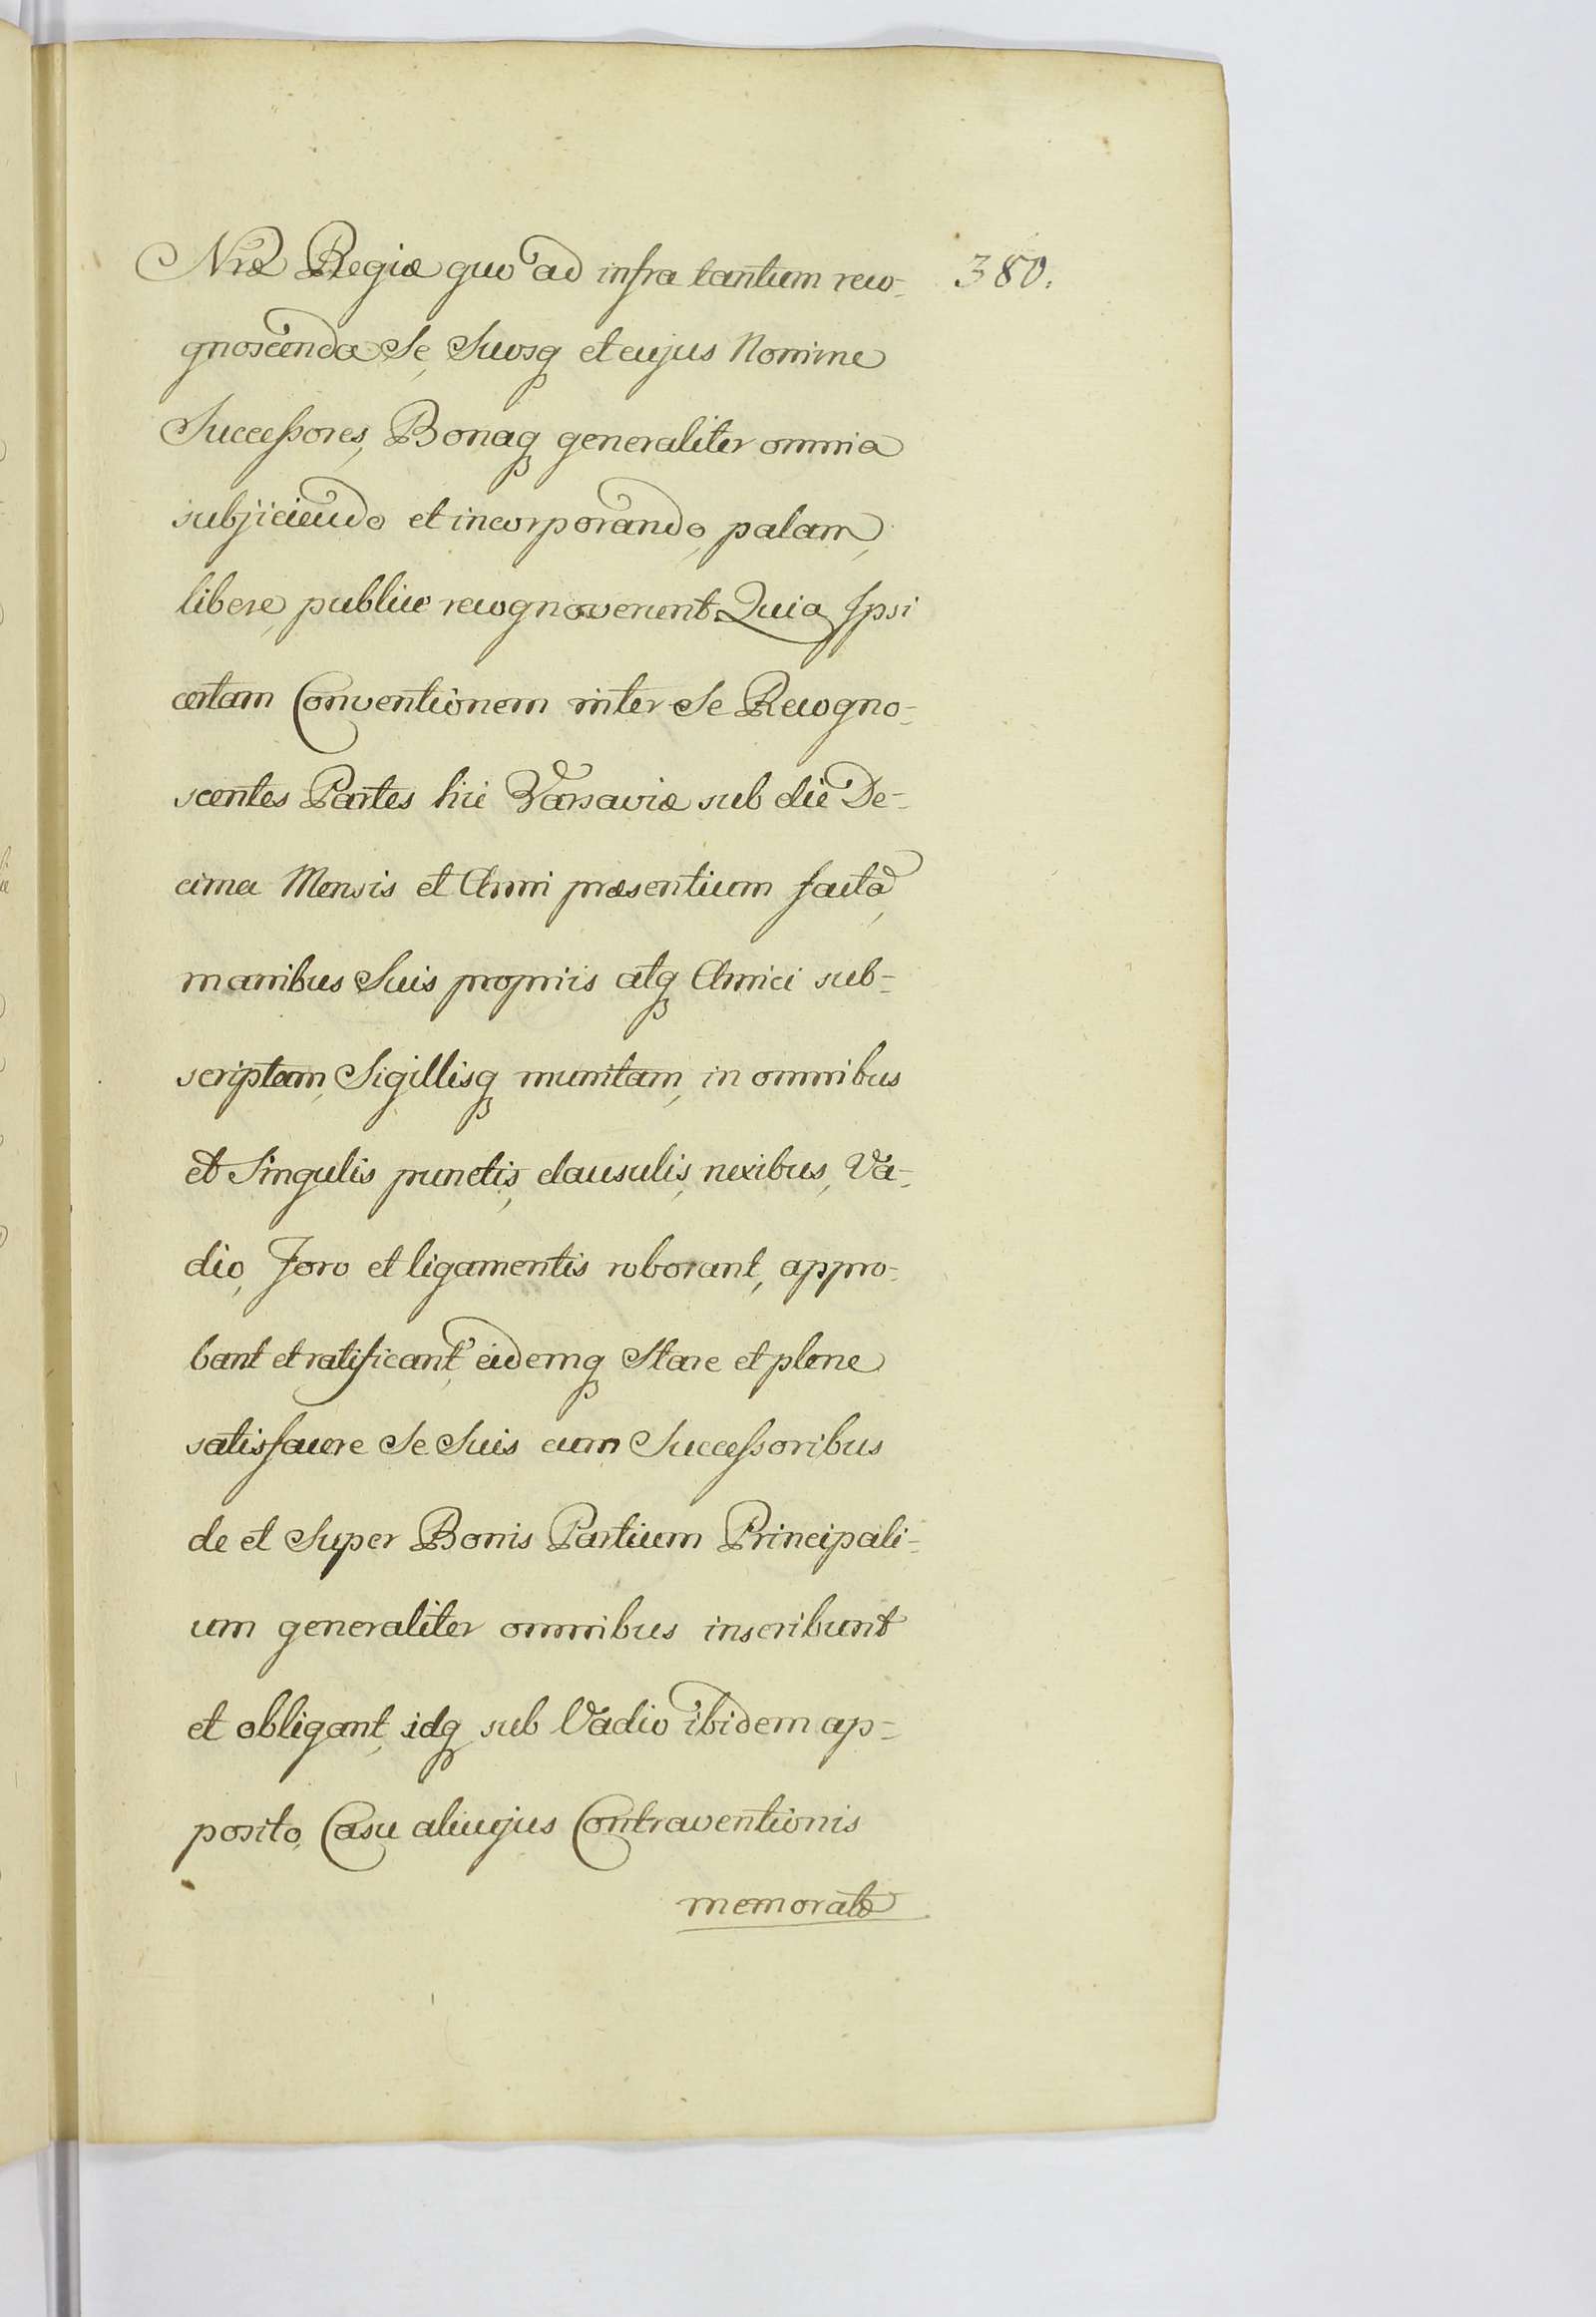 Nræ Regiæ quo ad infra tantum reco- 380.
gnoscenda Se, Suosq et cujus Nomine
Successores, Bonaq generaliter omnia
subjiciendo et incorporando, palam,
libere, publice recognoverunt Quia Ipsi
certam Conventionem inter Se Recogno-
scentes Partes hic Varsaviæ sub die De-
cima Mensis et Anni præsentium facta,
manibus Suis propriis atq Amici sub-
scriptam, Sigillisq munitam, in omnibus
et Singulis punctis, clausulis, nexibus, Va-
dio, Foro et ligamentis roborant, appro-
bant et ratificant, eidemq Stare et plene
satisfacere Se Suis cum Successoribus
de et Super Bonis Partium Principali-
um generaliter omnibus inscribunt
et obligant, idq sub Vadio ibidem ap-
posito, Casu alicujus Contraventionis
memoratæ